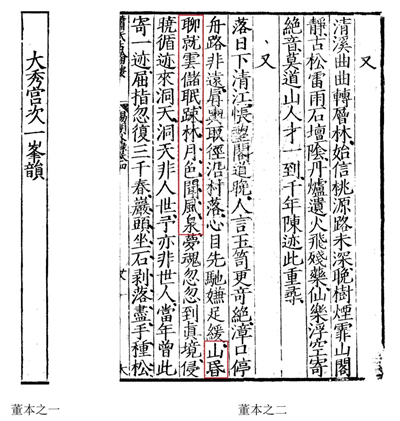 又
清溪曲曲轉層林始信桃源路未深晚樹煙霏山閣
靜古松雷雨石壇陰丹爐遺火飛殘藥仙樂浮空寄
絕音莫道山人才一到千年陳迹此重尋
又
落日下清江悵望閣道晚人言玉笥更奇絕漳口停
舟路非遠肩輿取徑沿村落心目先馳嫌足緩山昏
聊就雲儲眠疎林月色聞風泉夢魂忽忽到眞境侵
曉循迹來洞天洞天非人世予亦非世人當年曾此
寄一迹屈指忽復三千春巖頭坐石剥落盡手種松
大秀宫次一峯韻
董本之一
董本之二